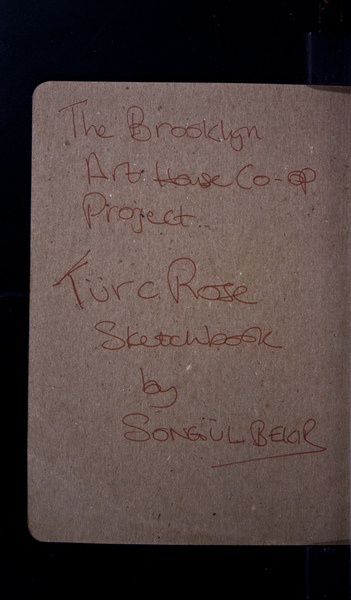 The Brooklyn
Art House Co-op
Project
Türc Rose
Sketchbook
by
SONGÜL BEKAR